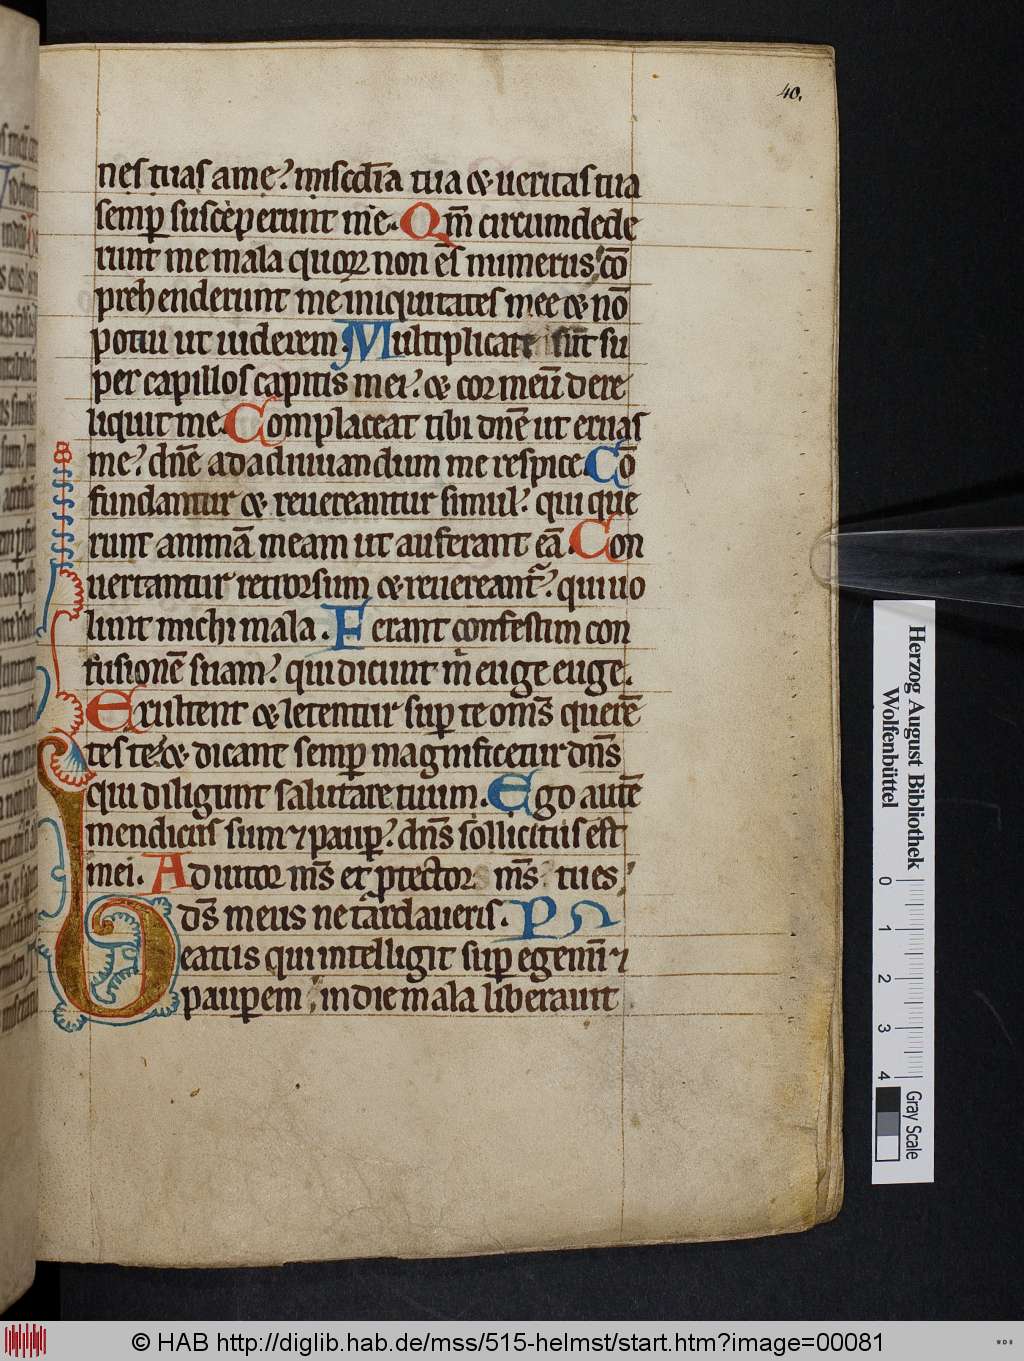 40.
nes tuas a me? miscdīa tua & ueritas tua
semꝑ susceperunt me. Qm̄ circumdede
runt me mala quoꝝ non ēs numerus, cō
prehenderunt me iniquitates mee & nō
potui ut uiderem. Multiplicate sūt su
per capillos capitis mei? & cor meū dere
liquit me. Complaceat tibi dn̄e ut eruas
me? dn̄e ad adiuuandum me respice. Cō
fundantur & reuereantur simul? qui que
runt animā meam ut auferant eā. Con
uertantur retrorsum & reuereant᷑? qui uo
lunt michi mala. Ferant confestim con
fusionē suam? qui dicunt m̄ euge euge.
Exultent & letentur suꝑ te om̄s querē
tes te? & dicant semꝑ magnificetur dn̄s
qui diligunt salutare tuum. Ego autē
mendicus sum ⁊ pauꝑ? dn̄s sollicitus est
mei. Adiutor m̄s et ꝓtector m̄s tu es,
ds̄ meus ne tardaueris.
Beatus qui intelligit suꝑ egenū ⁊
pauꝑem, in die mala liberauit
Herzog August Bibliothek
Wolfenbüttel
0 1 2 3 4
Gray Scale
© HAB http://diglib.hab.de/mss/515-helmst/start.htm?image=00081